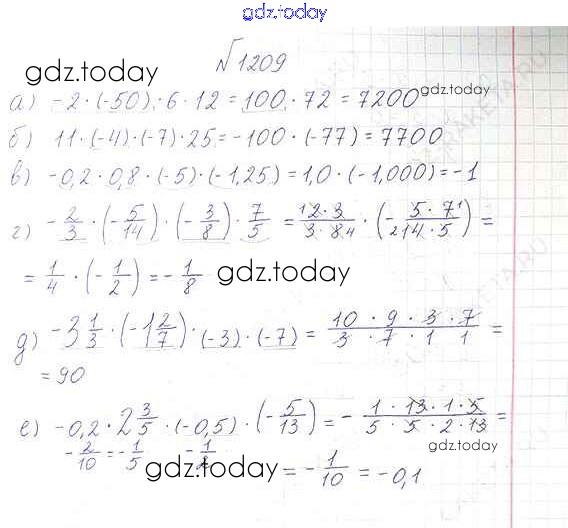 gdz.today
№1209
gdz.today
а) -2 · (-50) · 6 · 12 = 100 · 72 = 7200 gdz.today
б) 11 · (-4) · (-7) · 25 = -100 · (-77) = 7700
в) -0,2 · 0,8 · (-5) · (-1,25) = 1,0 · (-1,000) = -1
г) -2/3 · (-5/14) · (-3/8) · 7/5 = 12·3/3·84 · (-5·71/214·5) =
= 1/4 · (-1/2) = -1/8 gdz.today
д) -3 1/3 · (-1 2/7) · (-3) · (-7) = 10 · 9 · 3 · 7/3 · 7 · 1 1 =
= 90
е) -0,2 · 2 3/5 · (-0,5) · (-5/13) = - 1 · 13 · 1 · 5/5 · 5 · 2 · 13 =
-2/10 = -1/5 -1/2 gdz.today gdz.today
= -1/10 = -0,1